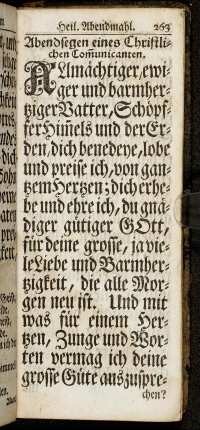 Heil. Abendmahl. 269
Abendsegen eines Christli-
chen Com̄unicanten.
ALlmächtiger, ewi-
ger und barmher-
tziger Vatter, Schöpf-
fer Him̄els und der Er-
den, dich benedeye, lobe
und preise ich, von gan-
tzem Hertzen; dich erhe-
be und ehre ich, du gnä-
diger gütiger GOtt,
für deine grosse, ja vie-
le Liebe und Barmher-
tzigkeit, die alle Mor-
gen neu ist. Und mit
was für einem Her-
tzen, Zunge und Wor-
ten vermag ich deine
grosse Güte auszuspre-
chen?